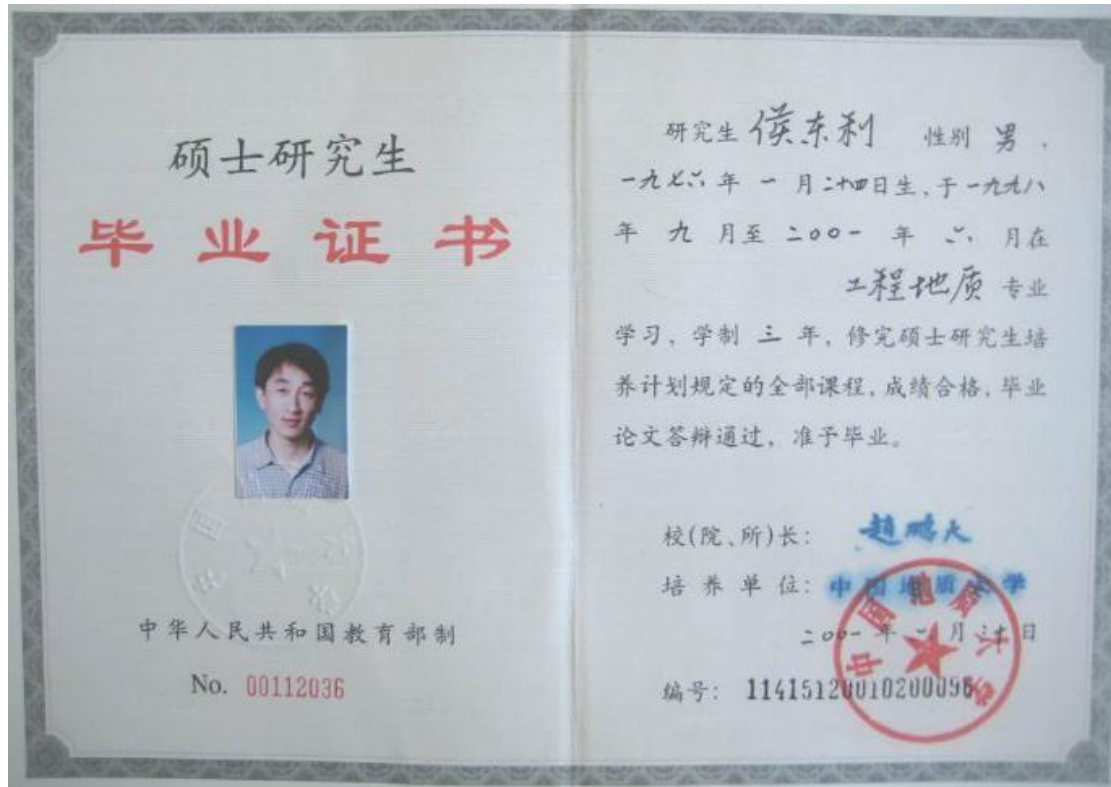 硕士研究生
毕业证书
中华人民共和国教育部制
No. 00112036
研究生 侯东利 性别 男，
一九七六年 一 月二十四日生、于一九九八
年 九 月至 二〇〇一 年 六 月在
工程地质 专业
学习，学制 三 年，修完硕士研究生培
养计划规定的全部课程，成绩合格，毕业
论文答辩通过，准予毕业。
校(院、所)长： 赵鹏大
培养单位：中国地质大学
二〇〇一 年 月 日
编号： 114151200102000096
中国地质大学